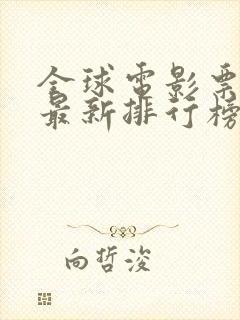 全球电影票
最新排行榜
向哲浚